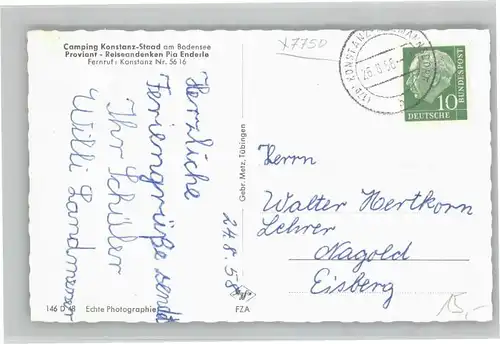 Camping Konstanz-Staad am Bodensee
Proviant - Reiseandenken Pia Enderle
Fernruf: Konstanz Nr. 5616
Herzliche
Feriengrüße sendet
Ihr Schüler
Willi
24.8.58
146 D 68 Echte Photographie
Gebr. Metz, Tübingen
FZA
X7750
KONSTANZ
10
DEUTSCHE
BUNDESPOST
Herrn
Walter Hertkorn
Lehrer
Nagold
Eisberg
15,-